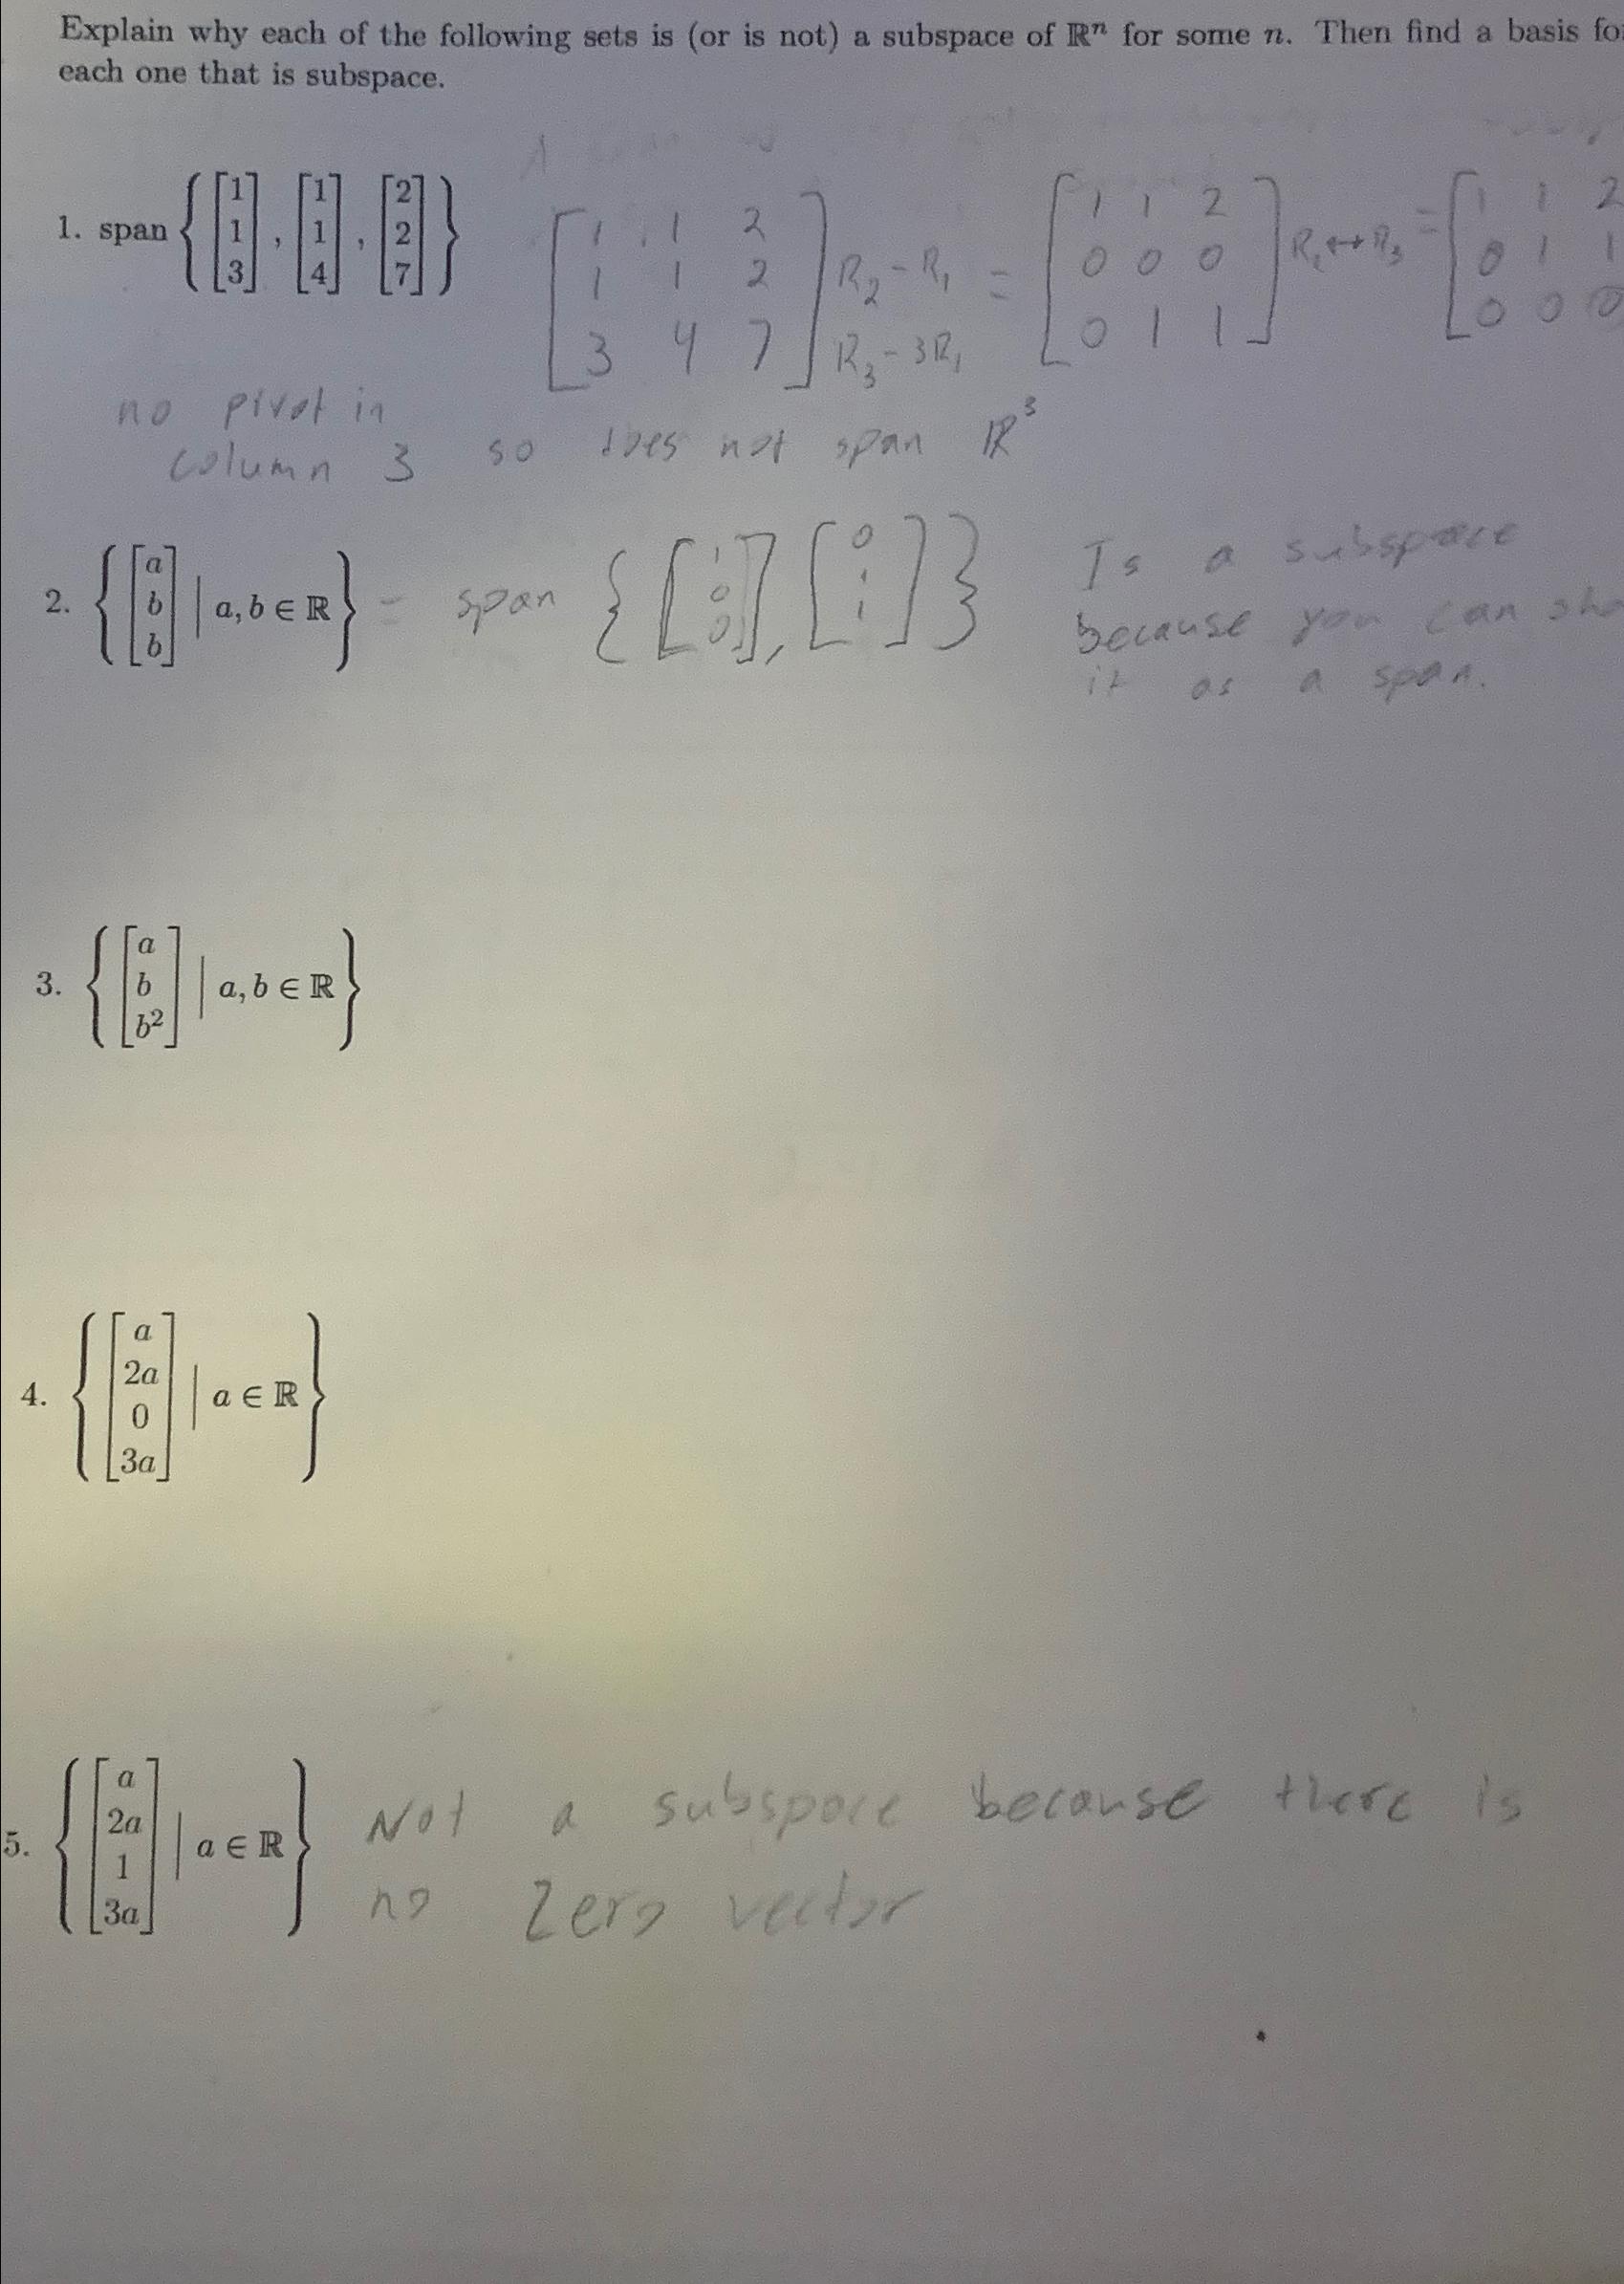 Explain why each of the following sets is (or is not) a subspace of ℝⁿ for some n. Then find a basis fo
each one that is subspace.
1. span { [1 1 3], [1 1 4], [2 2 7] }
[1 1 2
1 1 2
3 4 7] R₂ - R₁ R₃ - 3R₁ = [1 1 2
0 0 0
0 1 1] R₂ ↔ R₃ = [1 1 2
0 1 1
0 0 0
no pivot in
column 3 so does not span ℝ³
2. { [a b b] | a, b ∈ ℝ } = span { [1 0 0], [0 1 1] }
Is a subspace
because you can sho
it as a span.
3. { [a b b²] | a, b ∈ ℝ }
4. { [a 2a 0 3a] | a ∈ ℝ }
5. { [a 2a 1 3a] | a ∈ ℝ } Not a subspace because there is
no zero vector